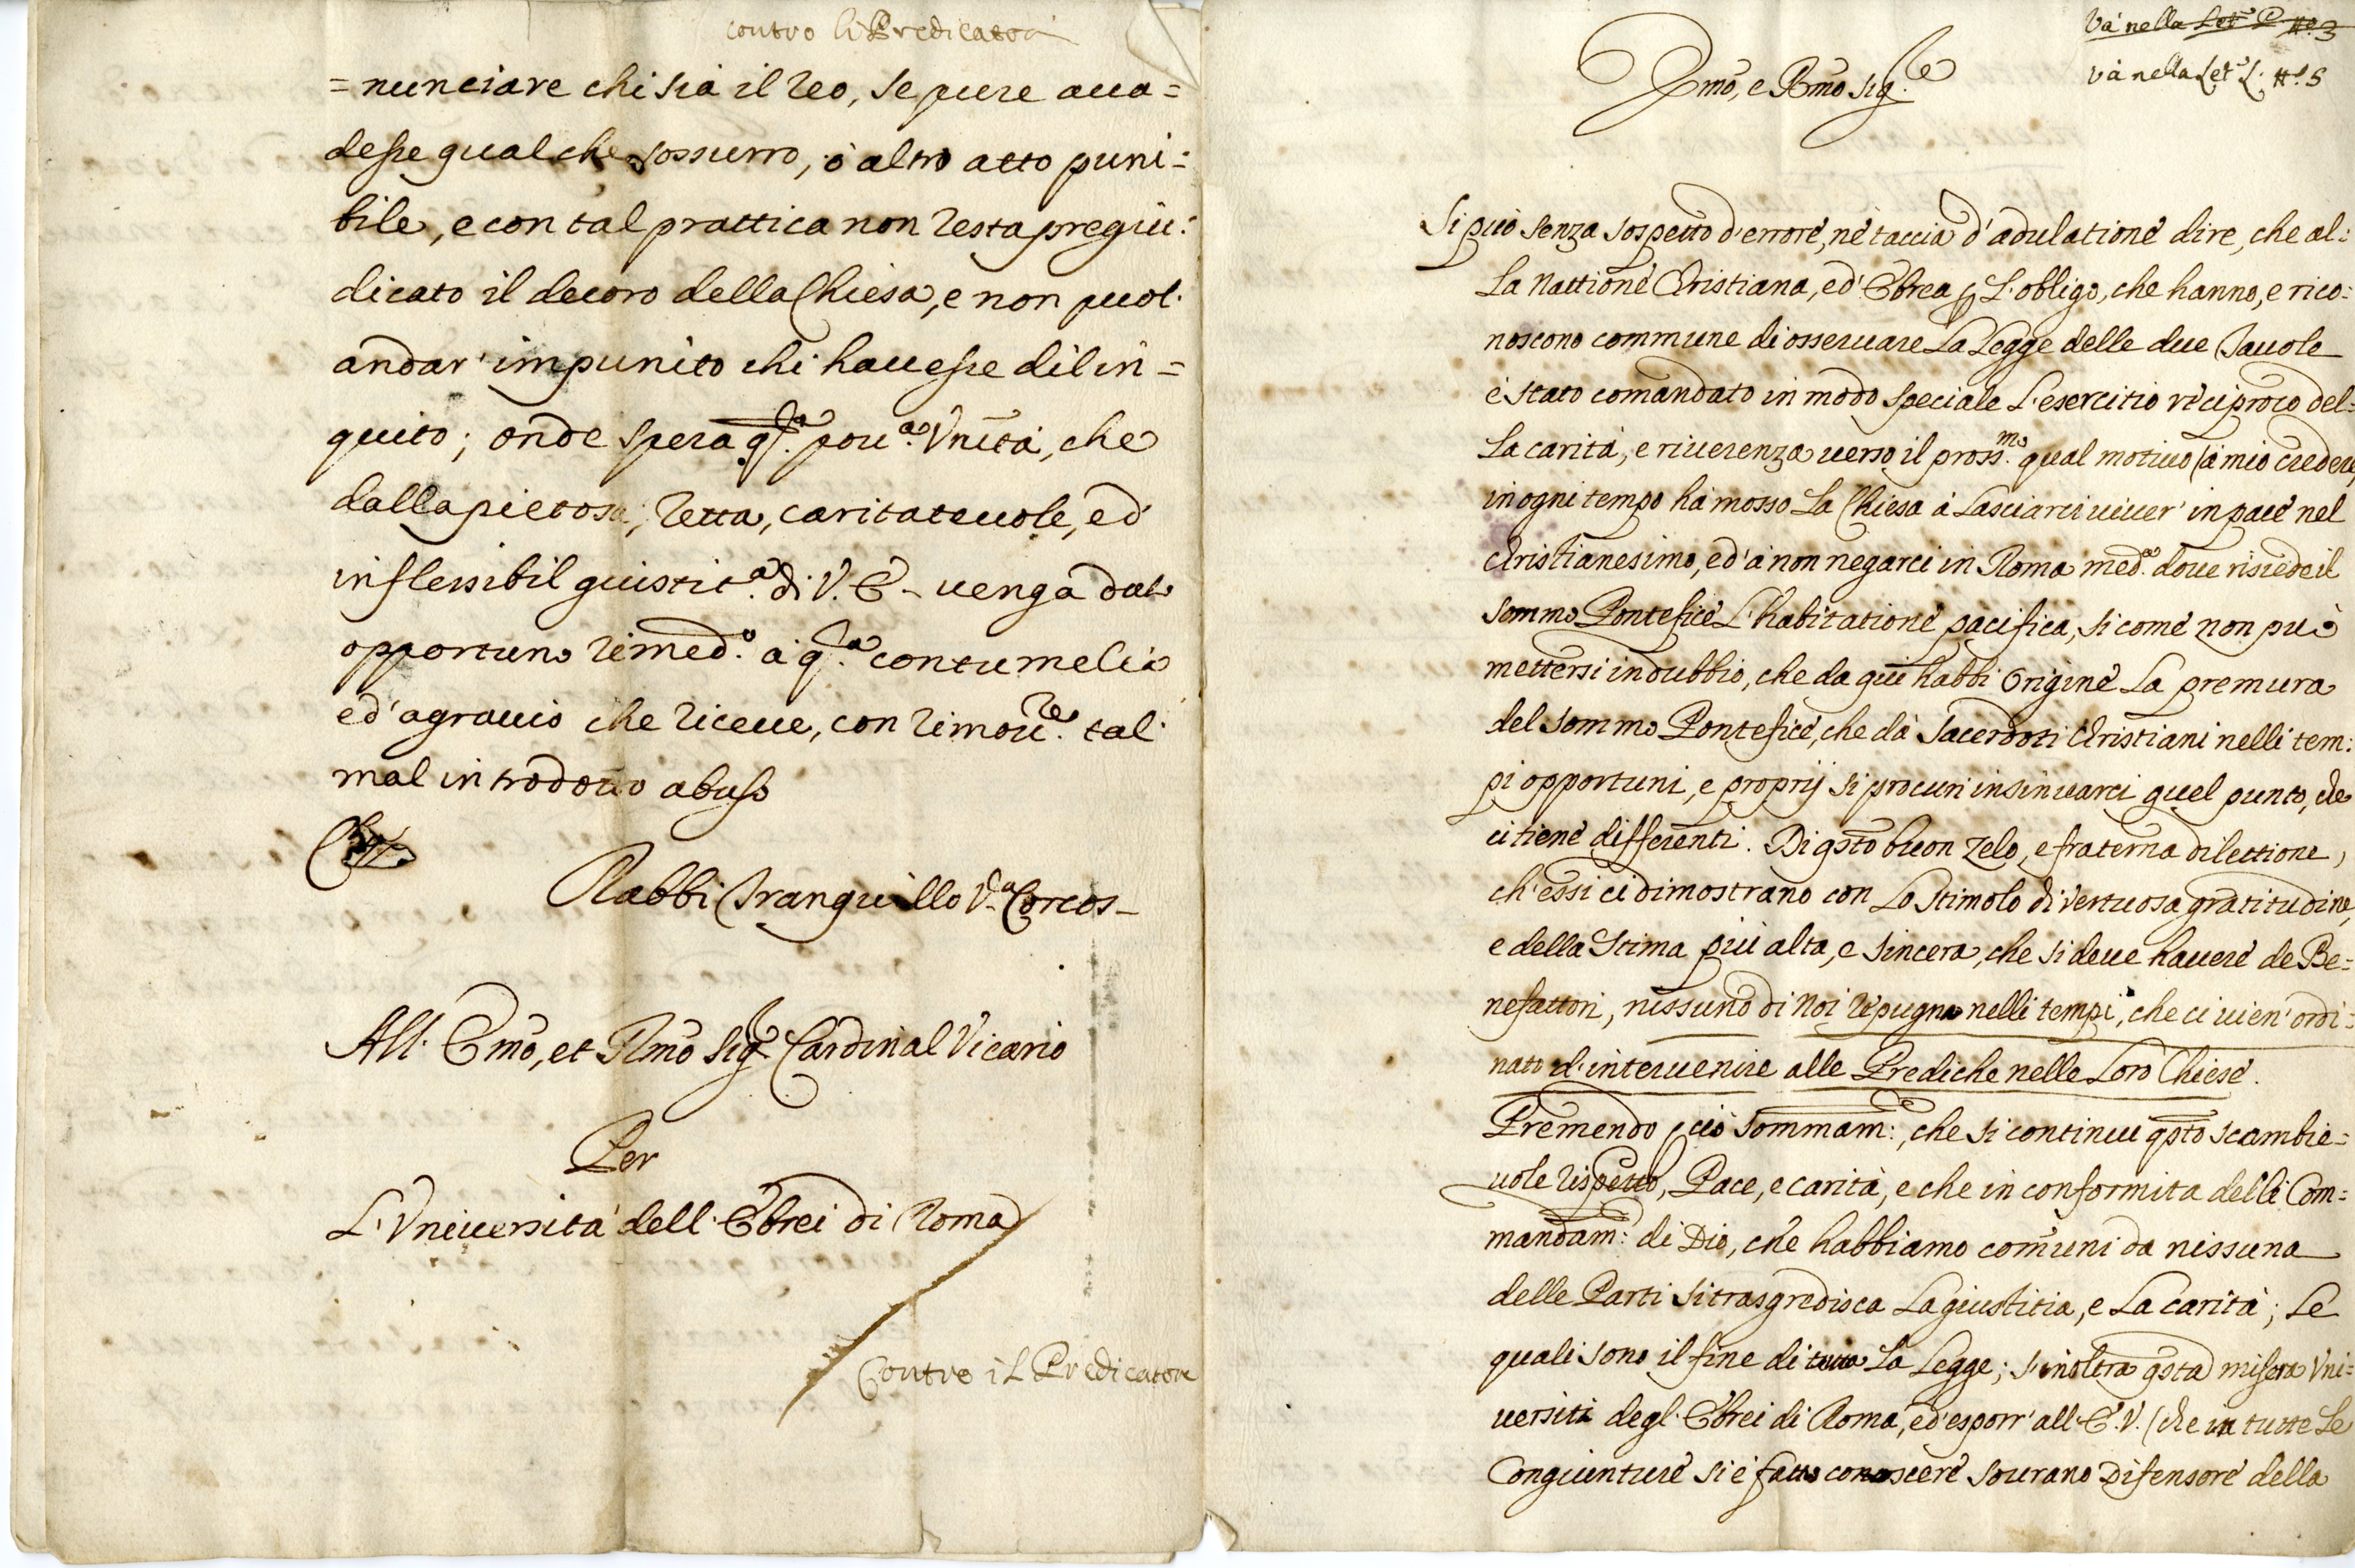 contro li Predicatori
= nunciare chi sia il reo, se pure acca=
desse qualche sossurro, ò altro atto puni=
bile, e con tal prattica non resta pregiu:
dicato il decoro della Chiesa, e non puol'
andar' impunito chi havesse dilin=
quito; onde spera q.sta pov.a Vnità, che
dalla pietosa, retta, caritatevole, ed
inflessibil giustit.a di V. E. venga dato
opportuno rimed.o à q.sta contumelia
ed' agravio che riceve, con rimov.re tal'
mal introdotto abuso
Rabbi Tranquillo V.a Corcos
All' Emo, et Rmo Sig.r Cardinal Vicario
Per
L'Vniversita dell' Ebrei di Roma
Contro il Predicatore
Và nella Let.a P n.o 3
và nella Let.a L. n.o 5
Emo, e Rmo Sig.re
Si può senza sospetto d'errore, nè taccia d'adulatione dire, che al:
la Nattione Christiana, ed' Ebrea p L'obligo, che hanno, e rico=
noscono commune di osservare La Legge delle due Tavole
è stato comandato in modo speciale L'esercitio reciproco del=
la carità, e riverenza verso il pross.mo qual motivo (à mio credere
in ogni tempo hà mosso La Chiesa à Lasciarci viver' in pace nel
Christianesimo, ed' à non negarci in Roma med.a dove risiede il
sommo Pontefice L'habitatione pacifica, si come non può
mettersi in dubbio, che da qui habbi Origine La premura
del sommo Pontefice, che dà Sacerdoti Christiani nelli tem:
pi opportuni, e proprij si procuri insinuarci quel punto, che
ci tiene differenti. Di qsto buon zelo, e fraterna dilettione,
ch'essi ci dimostrano con Lo Stimolo di vertuosa gratitudine,
e della Stima più alta, e sincera, che si deve havere de Be=
nefattori, nissuno di Noi repugna nelli tempi, che ci vien' ordi=
nato d'intervenire alle Prediche nelle Loro Chiese.
Premendo p ciò sommam:te, che si continui qsto scambie=
vole rispetto, Pace, e carità, e che in conformita delli Com=
mandam:ti di Dio, che habbiamo comuni da nissuna
delle Parti si trasgredisca La giustitia, e La carità; Le
quali sono il fine di tutta La Legge; s'inoltra qsta misera Vni=
versità degl' Ebrei di Roma, ed' esporr' all' E. V. (che in tutte Le
Congiunture si è fatto conoscere sovrano Difensore della